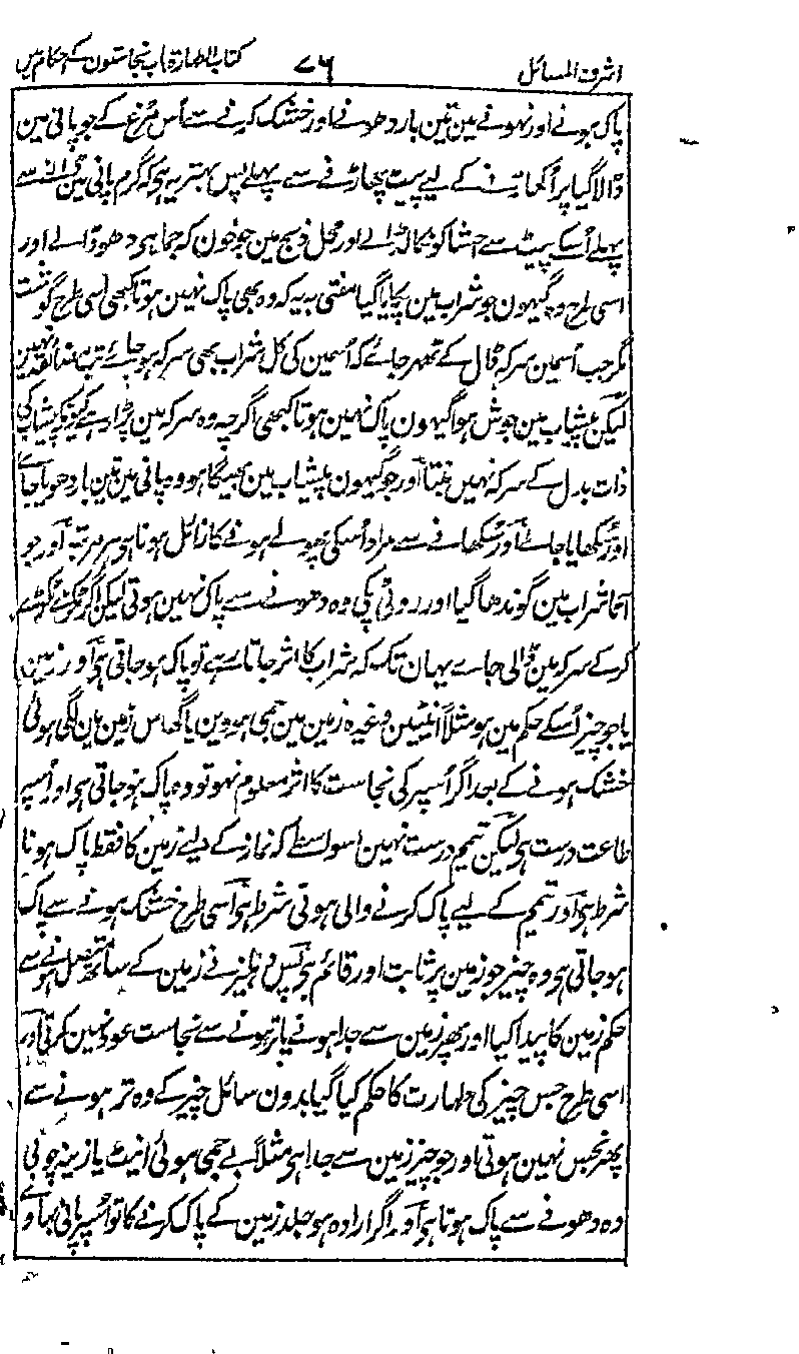 اشرف المسائل ۷۶ کتاب الطہارۃ باب نجاستون کے احکام میں
پاک ہونے اور نہونے مین تین بار دھونے اور خشک کرنے سے اُس مرغ کے جو پانی مین
ڈالا گیا پر اُکھاڑنے کے لیے پیٹ پھاڑنے سے پہلے پس بہتر یہ ہی کہ گرم پانی مین ڈالنے سے
پہلے اُسکے پیٹ سے احشا کو نکال ڈالے اور محل ذبح مین جو خون کہ جما ہی دھو ڈالے اور
اسی طرح وہ گیہون جو شراب مین پکایا گیا مفتی بہ یہ کہ وہ بھی پاک نہین ہوتا کبھی اسی طرح گوشت
مگر جب اُسمین سرکہ ڈال کے ٹھہر جائے کہ اُسمین کی کل شراب بھی سرکہ ہو جائے تب مضائقہ نہین
لیکن پیشاب مین جوش ہوا گیہون پاک نہین ہوتا کبھی اگرچہ وہ سرکہ مین پڑا رہے کیونکہ پیشاب کی
ذات بدل کے سرکہ نہین بنتا اور جو گیہون پیشاب مین بھیگا ہو وہ پانی مین تین بار دھویا جائے
اور سُکھایا جائے اور سُکھانے سے مراد اُسکی پھولے ہونے کا زائل ہونا ہو ہر مرتبہ اور جو
آٹا شراب مین گوندھا گیا اور روٹی پکی وہ دھونے سے پاک نہین ہوتی لیکن اگر ٹکڑے ٹکڑے
کرکے سرکہ مین ڈالی جاے یہان تک کہ شراب کا اثر جاتا رہے تو پاک ہو جاتی ہی اور زمین
یا جو چیز اُسکے حکم مین ہو مثلاً اینٹین وغیرہ زمین مین جمی ہووین یا گھاس زمین مین لگی ہوئی
خشک ہونے کے بعد اگر اُسپر کی نجاست کا اثر معلوم نہو تو وہ پاک ہو جاتی ہی اور اُسپر
طاعت درست ہی لیکن تیمم درست نہین اسواسطے کہ نماز کے لیے زمین کا فقط پاک ہونا
شرط ہی اور تیمم کے لیے پاک کرنے والی ہونی شرط ہی اسی طرح خشک ہونے سے پاک
ہو جاتی ہی وہ چیز جو زمین پر ثابت اور قائم ہی پس دہلیز نے زمین کے ساتھ متصل ہونے سے
حکم زمین کا پیدا کیا اور پھر زمین سے جدا ہونے یا تر ہونے سے نجاست عود نہین کرتی اور
اسی طرح جس چیز کی طہارت کا حکم کیا گیا بدون سائل چیز کے وہ تر ہونے سے
پھر نجس نہین ہوتی اور جو چیز زمین سے جدا ہی مثلاً بے جمی ہوئی اینٹ یا زینہ چوبی
وہ دھونے سے پاک ہوتا ہی اور اگر ارادہ ہو جلد زمین کے پاک کرنے کا تو اُسپر پانی بہاوے